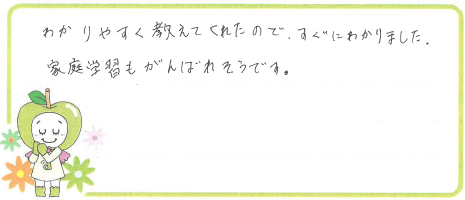 わかりやすく教えてくれたので、すぐにわかりました。
家庭学習もがんばれそうです。